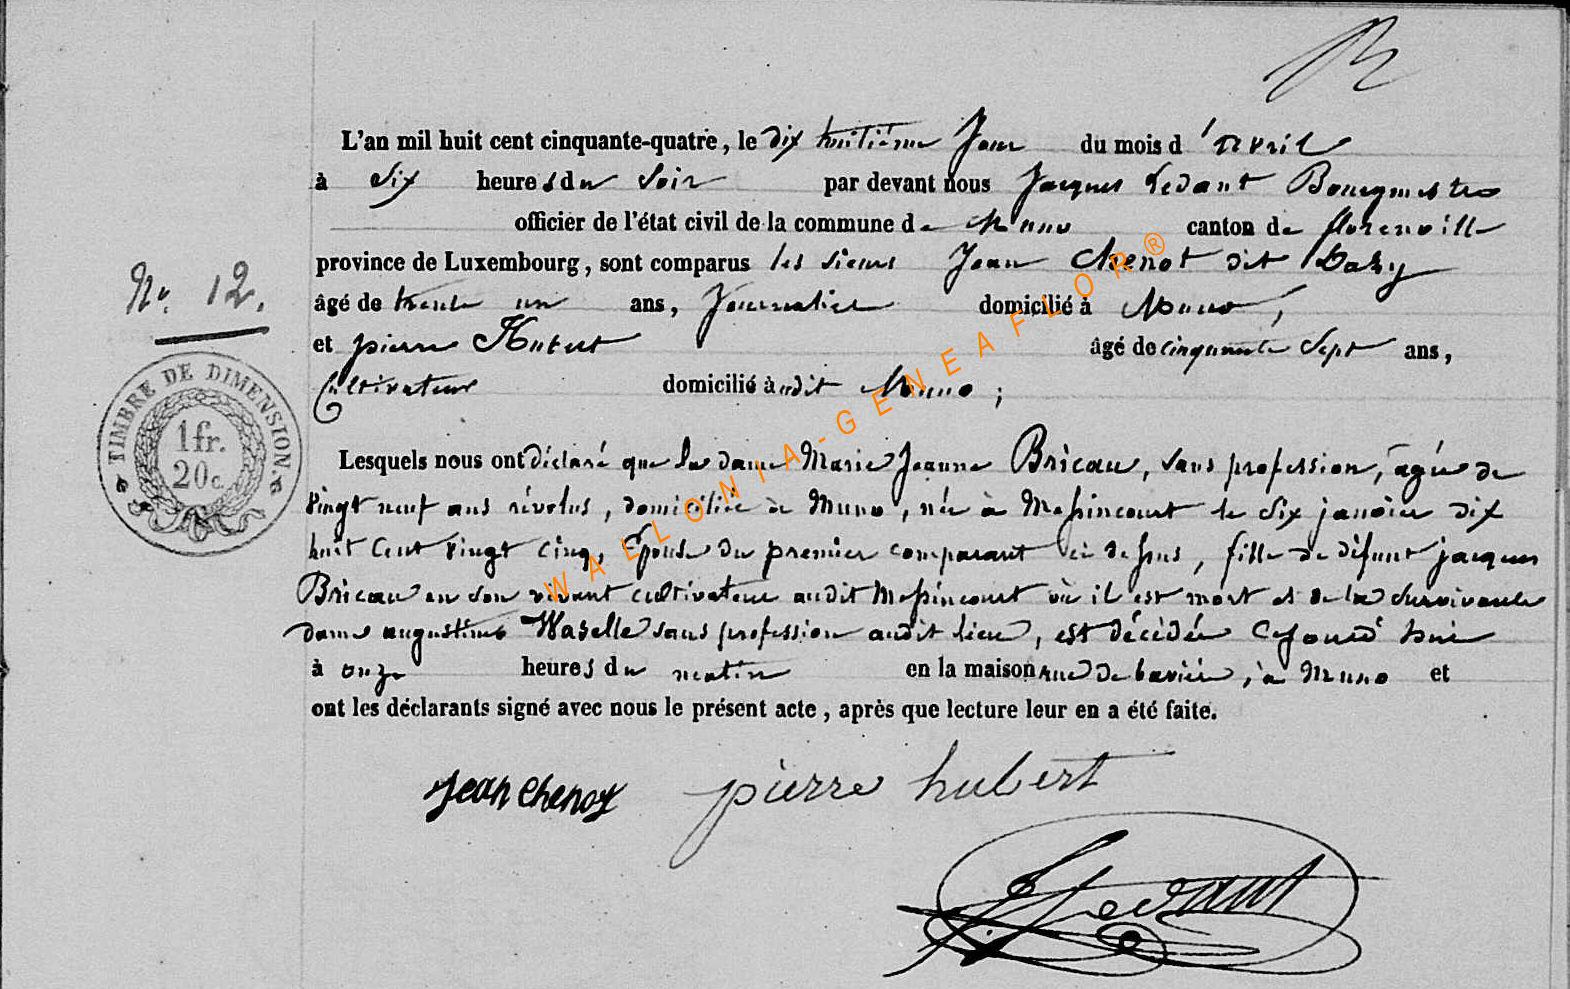 L'an mil huit cent cinquante-quatre, le dix huitième Jour du mois d'avril
à Six heures du Soir par devant nous Jacques Ledant Bourgmestre
officier de l'état civil de la commune de Muno canton de florenville
province de Luxembourg, sont comparus les sieurs Jean Chenot dit Dazy
No. 12.
âgé de trente un ans, Journalier domicilié à Muno,
et pierre Hubert âgé de cinquante Sept ans,
Cultivateur domicilié audit Muno;
TIMBRE DE DIMENSION.
1 fr.
20 c.
Lesquels nous ont déclaré que la dame Marie Jeanne Bricau, sans profession, agée de
vingt neuf ans révolus, domiciliée de Muno, née à Messincourt le Six janvier dix
huit Cent vingt cinq, Epouse du premier comparant ci dessus, fille de défunt jacques
Bricau en son vivant cultivateur audit Messincourt où il est mort et de la Survivante
dame augustine Waselle sans profession audit lieu, est décédée Cejourd'hui
à onze heures du matin en la maison rue de à Muno et
ont les déclarants signé avec nous le présent acte, après que lecture leur en a été faite.
jean chenot pierre hubert
J. Ledant
WALLONIA-GENEAFLOR®